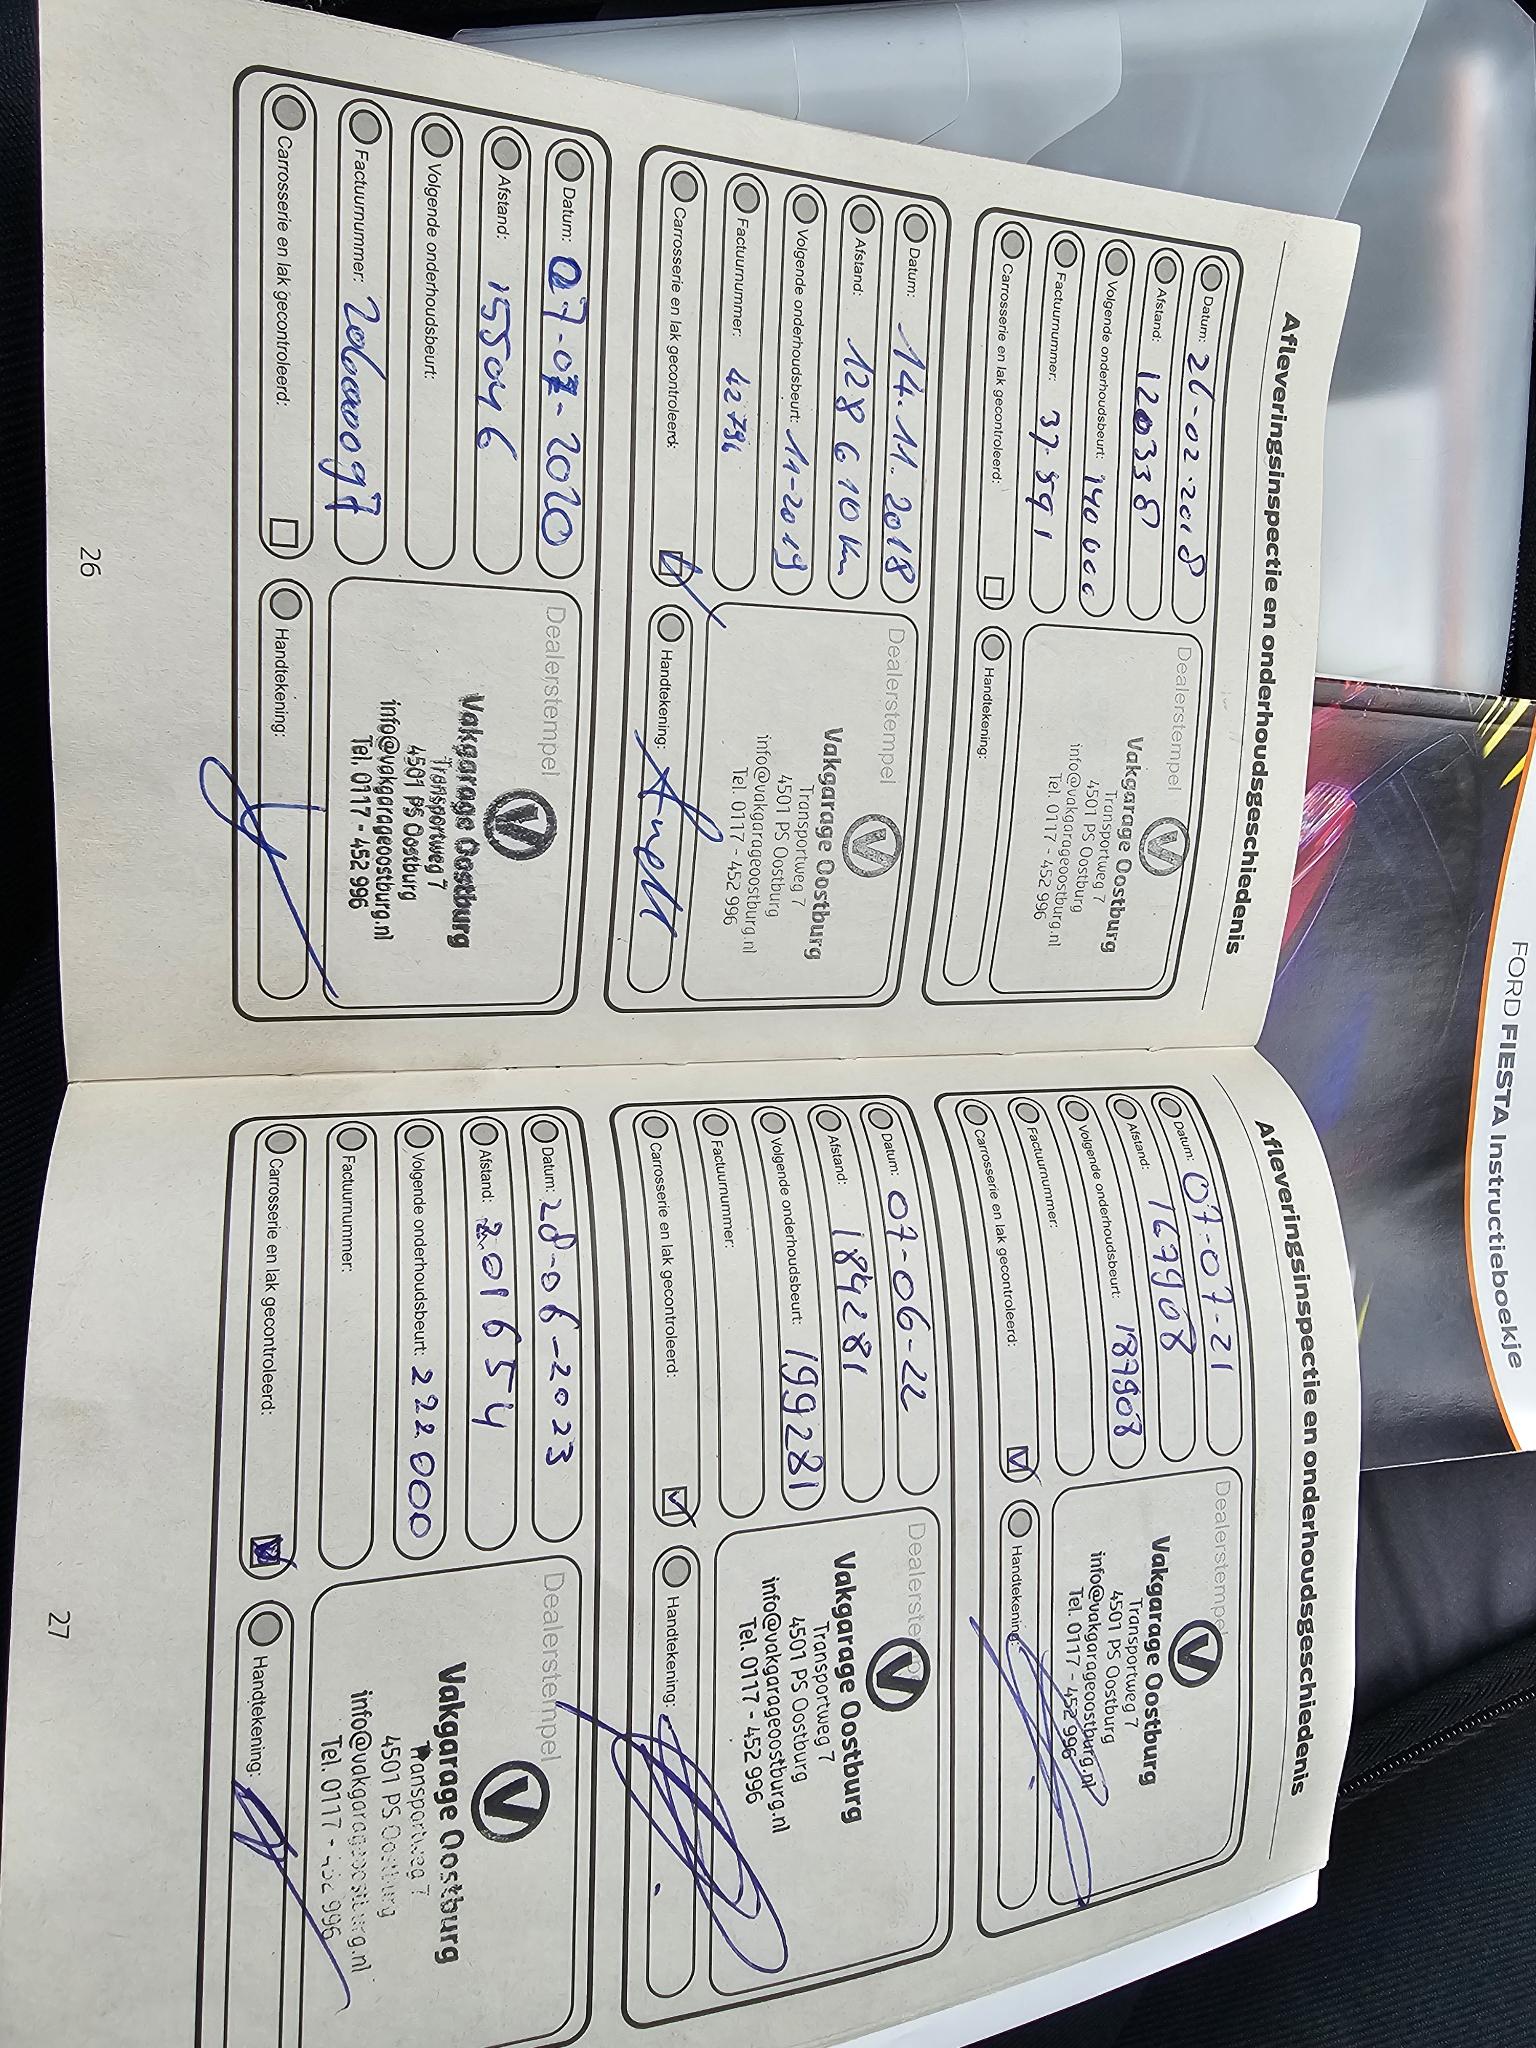 Afleveringsinspectie en onderhoudsgeschiedenis
Datum: 26-02-2018
Afstand: 120338
Volgende onderhoudsbeurt: 140000
Factuurnummer: 37.591
Carrosserie en lak gecontroleerd:
Dealerstempel
V
Vakgarage Oostburg
Transportweg 7
4501 PS Oostburg
info@vakgarageoostburg.nl
Tel. 0117 - 452 996
Handtekening:
Datum: 14.11.2018
Afstand: 128610 km
Volgende onderhoudsbeurt: 11-2019
Factuurnummer: 42796
Carrosserie en lak gecontroleerd:
Dealerstempel
V
Vakgarage Oostburg
Transportweg 7
4501 PS Oostburg
info@vakgarageoostburg.nl
Tel. 0117 - 452 996
Handtekening:
Datum: 07-07-2020
Afstand: 155046
Volgende onderhoudsbeurt:
Factuurnummer:
Carrosserie en lak gecontroleerd:
Dealerstempel
V
Vakgarage Oostburg
Transportweg 7
4501 PS Oostburg
info@vakgarageoostburg.nl
Tel. 0117 - 452 996
Handtekening:
26
Afleveringsinspectie en onderhoudsgeschiedenis
Datum: 07-07-21
Afstand: 167908
Volgende onderhoudsbeurt: 187908
Factuurnummer:
Carrosserie en lak gecontroleerd:
Dealerstempel
V
Vakgarage Oostburg
Transportweg 7
4501 PS Oostburg
info@vakgarageoostburg.nl
Tel. 0117 - 452 996
Handtekening:
Datum: 07-06-22
Afstand: 184281
Volgende onderhoudsbeurt: 199281
Factuurnummer:
Carrosserie en lak gecontroleerd:
Dealerstempel
V
Vakgarage Oostburg
Transportweg 7
4501 PS Oostburg
info@vakgarageoostburg.nl
Tel. 0117 - 452 996
Handtekening:
Datum: 28-06-2023
Afstand: 201654
Volgende onderhoudsbeurt: 222000
Factuurnummer:
Carrosserie en lak gecontroleerd:
Dealerstempel
V
Vakgarage Oostburg
Transportweg 7
4501 PS Oostburg
info@vakgarageoostburg.nl
Tel. 0117 - 452 996
Handtekening:
27
FORD FIESTA Instructieboekje